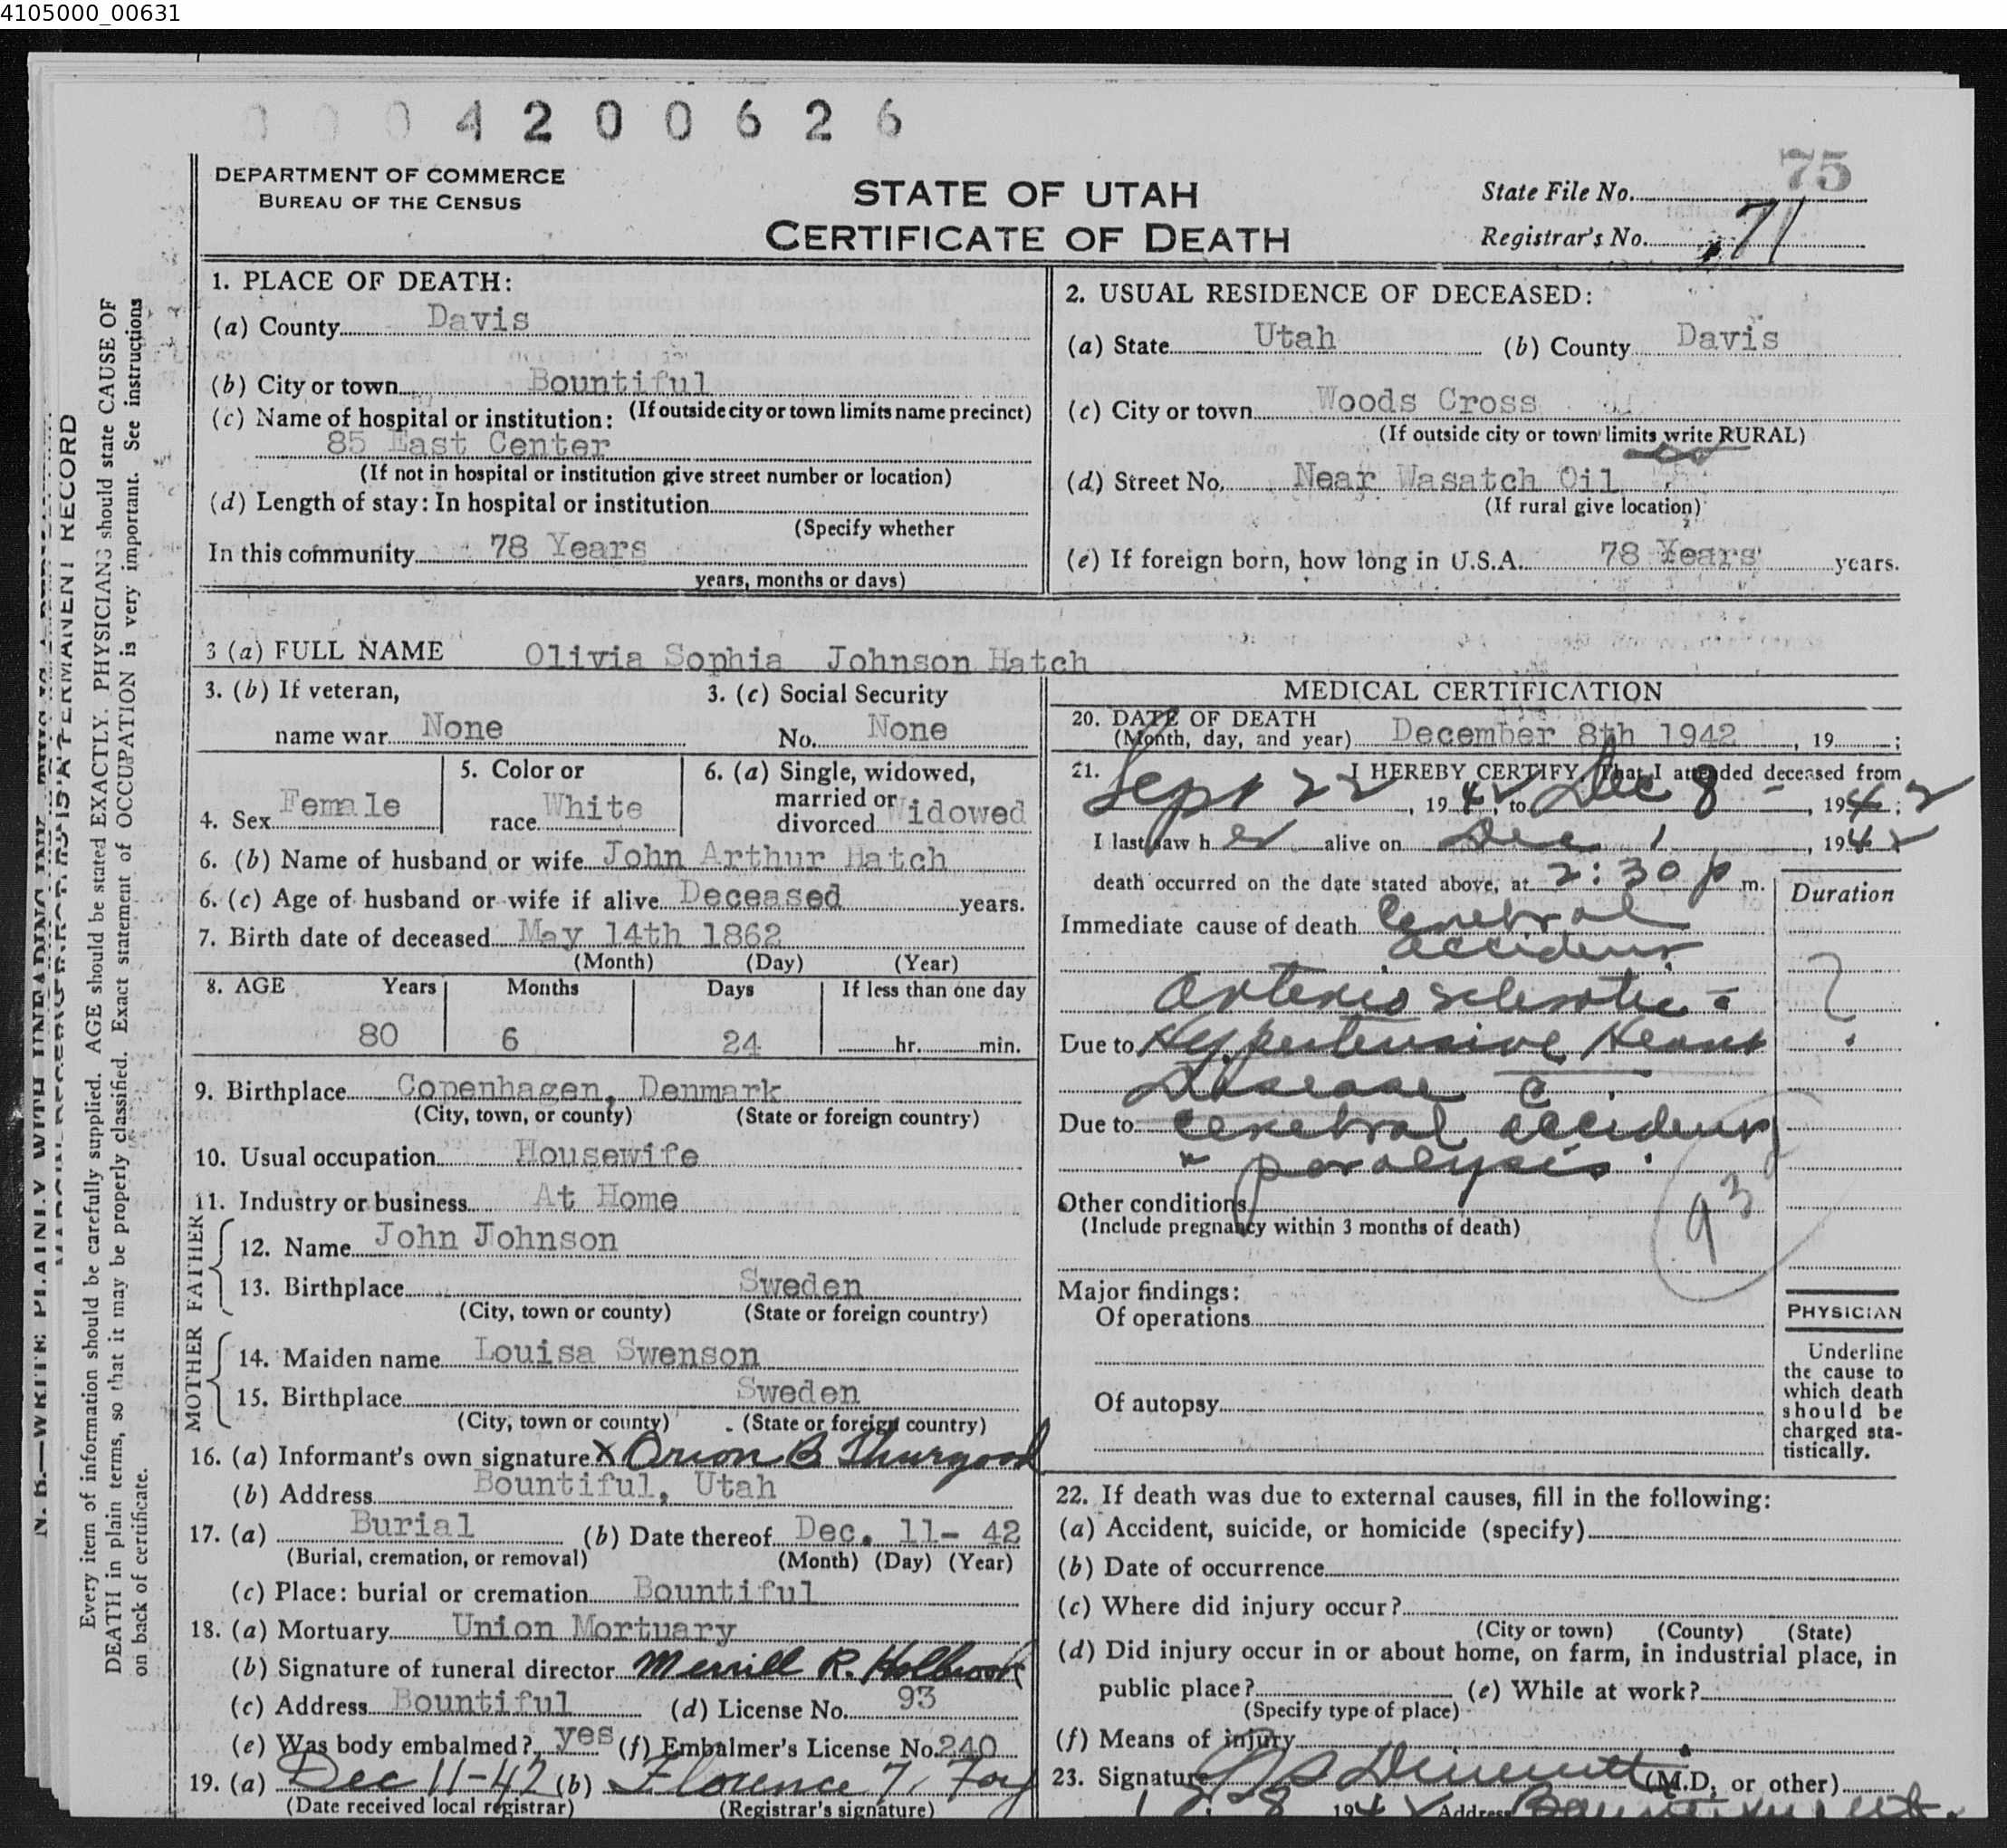 4105000_00631
0 0 0 4 2 0 0 6 2 6
75
DEPARTMENT OF COMMERCE
BUREAU OF THE CENSUS
STATE OF UTAH
CERTIFICATE OF DEATH
State File No.
Registrar's No. 71
1. PLACE OF DEATH:
(a) County Davis
(b) City or town Bountiful
(If outside city or town limits name precinct)
(c) Name of hospital or institution:
85 East Center
(If not in hospital or institution give street number or location)
(d) Length of stay: In hospital or institution
(Specify whether
In this community 78 Years
years, months or days)
2. USUAL RESIDENCE OF DECEASED:
(a) State Utah (b) County Davis
(c) City or town Woods Cross
(If outside city or town limits write RURAL)
(d) Street No. Near Wasatch Oil
(If rural give location)
(e) If foreign born, how long in U.S.A. 78 Years years.
3 (a) FULL NAME Olivia Sophia Johnson Hatch
3. (b) If veteran,
name war None
3. (c) Social Security
No. None
4. Sex Female
5. Color or
race White
6. (a) Single, widowed,
married or
divorced Widowed
6. (b) Name of husband or wife John Arthur Hatch
6. (c) Age of husband or wife if alive Deceased years.
7. Birth date of deceased May 14th 1862
(Month) (Day) (Year)
8. AGE Years Months Days If less than one day
80 6 24 hr. min.
9. Birthplace Copenhagen, Denmark
(City, town, or county) (State or foreign country)
10. Usual occupation Housewife
11. Industry or business At Home
FATHER
12. Name John Johnson
13. Birthplace Sweden
(City, town or county) (State or foreign country)
MOTHER
14. Maiden name Louisa Swenson
15. Birthplace Sweden
(City, town or county) (State or foreign country)
16. (a) Informant's own signature X Orion B Thurgood
(b) Address Bountiful, Utah
17. (a) Burial (b) Date thereof Dec. 11- 42
(Burial, cremation, or removal) (Month) (Day) (Year)
(c) Place: burial or cremation Bountiful
18. (a) Mortuary Union Mortuary
(b) Signature of funeral director Merrill R. Holbrook
(c) Address Bountiful (d) License No. 93
(e) Was body embalmed? yes (f) Embalmer's License No. 240
19. (a) Dec 11-42 (b) Florence
(Date received local registrar) (Registrar's signature)
MEDICAL CERTIFICATION
20. DATE OF DEATH
(Month, day, and year) December 8th 1942, 19 ;
21. I HEREBY CERTIFY, That I attended deceased from
Sept 22, 1942, to Dec 8 -, 1942;
I last saw her alive on Dec 1, 1942
death occurred on the date stated above, at 2:30 p m.
Duration
Immediate cause of death Cerebral
accident
Arterio sclerotic =
?
Due to Hypertensive Heart
Disease c
Due to cerebral accident
+ paralysis.
93
Other conditions
(Include pregnancy within 3 months of death)
Major findings:
Of operations
Of autopsy
PHYSICIAN
Underline
the cause to
which death
should be
charged sta-
tistically.
22. If death was due to external causes, fill in the following:
(a) Accident, suicide, or homicide (specify)
(b) Date of occurrence
(c) Where did injury occur?
(City or town) (County) (State)
(d) Did injury occur in or about home, on farm, in industrial place, in
public place? (e) While at work?
(Specify type of place)
(f) Means of injury
23. Signature (M.D. or other)
12-8 1942 Address Bountiful Ut.
N. B.—WRITE PLAINLY WITH UNFADING INK
PERMANENT RECORD
Every item of information should be carefully supplied. AGE should be stated EXACTLY. PHYSICIANS should state CAUSE OF
DEATH in plain terms, so that it may be properly classified. Exact statement of OCCUPATION is very important. See instructions
on back of certificate.